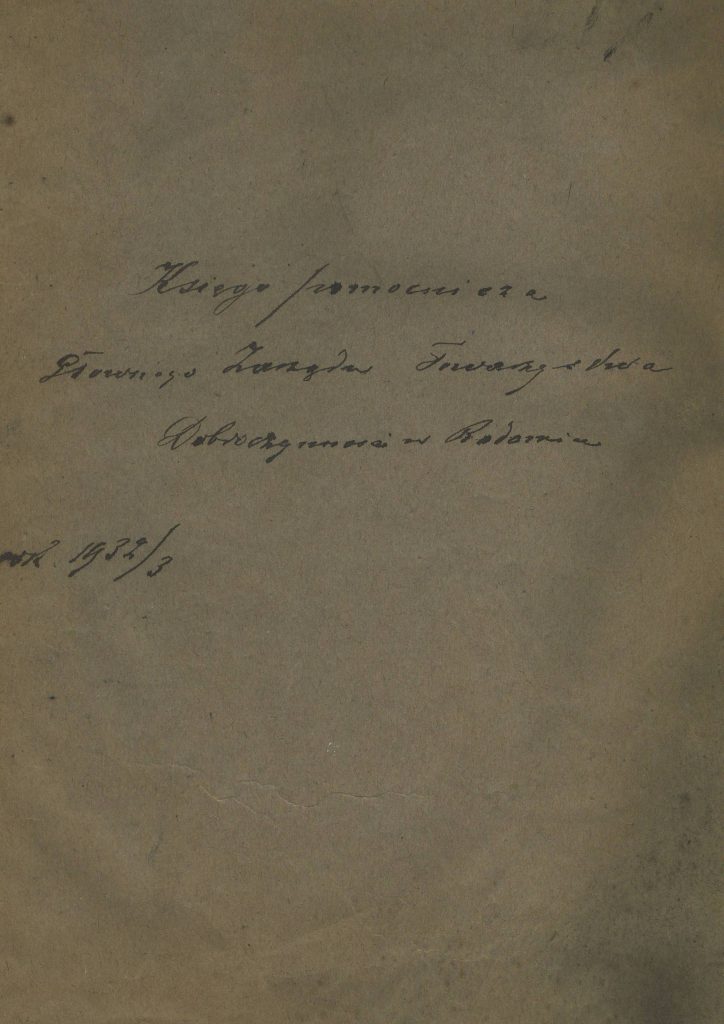 Księga pomocnicza
Głównego Zarządu Towarzystwa
Dobroczynności w Radomiu
rok 1932/3